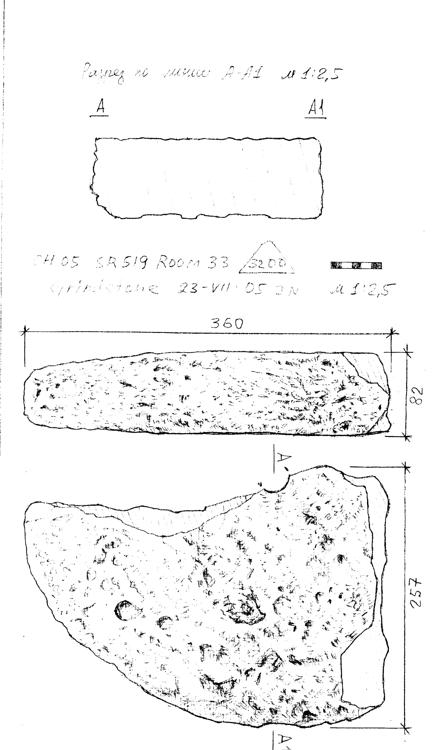 Разрез по линии А-А1 м 1:2,5
А А1
CH 05 SR519 ROOM 33 3200
Grindstone 23-VII-05 м 1:2,5
360
82
А
257
А1